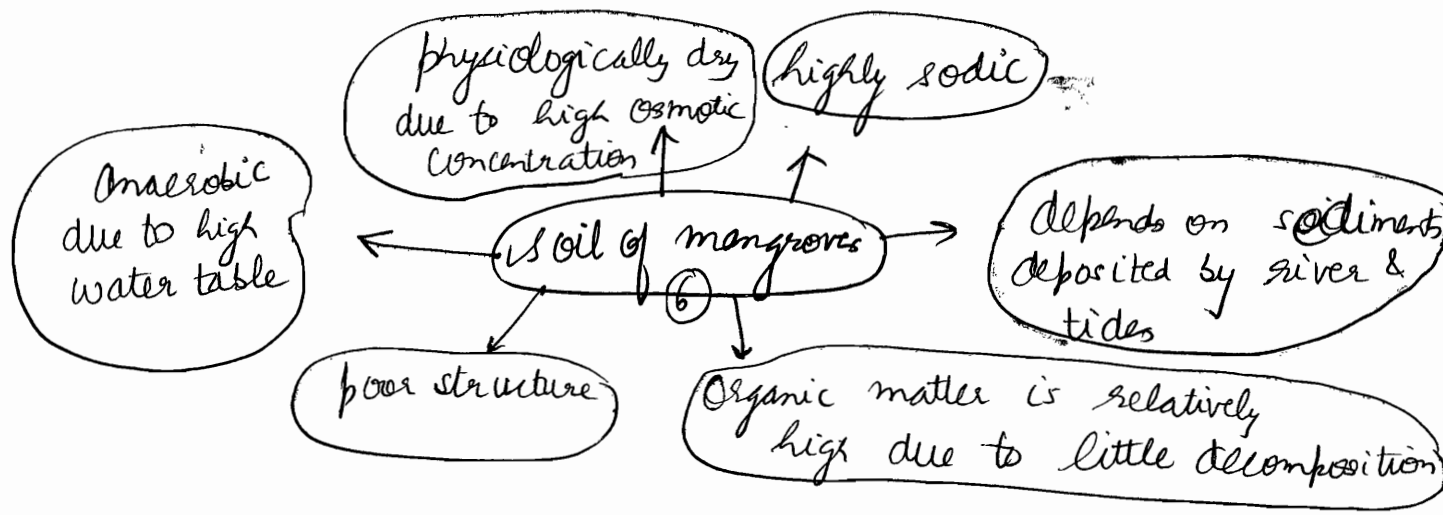 physiologically dry
due to high osmotic
concentration
highly sodic
anaerobic
due to high
water table
soil of mangroves
6
depends on sediments
deposited by river &
tides
poor structure
Organic matter is relatively
high due to little decomposition